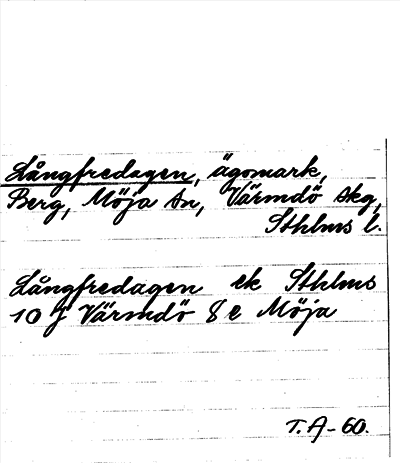 Långfredagen, ägomark,
Berg, Möja sn, Värmdö skg,
Sthlms l.
Långfredagen ek Sthlms
10 J Värmdö 8 e Möja
T.A-60.